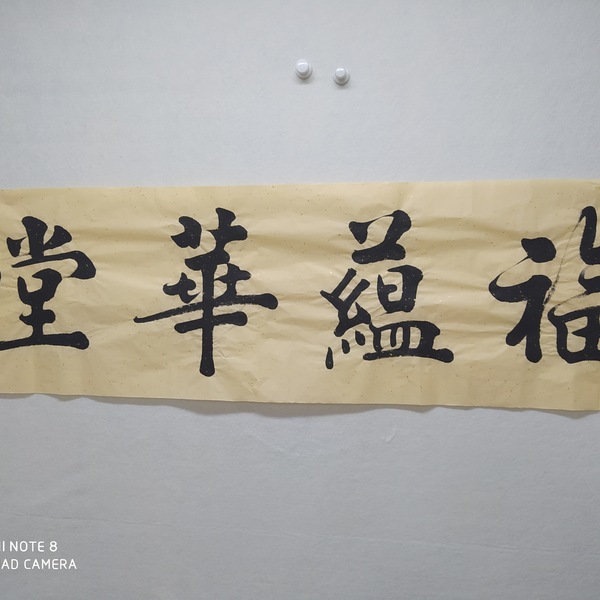 福蘊華堂
NOTE 8
AD CAMERA